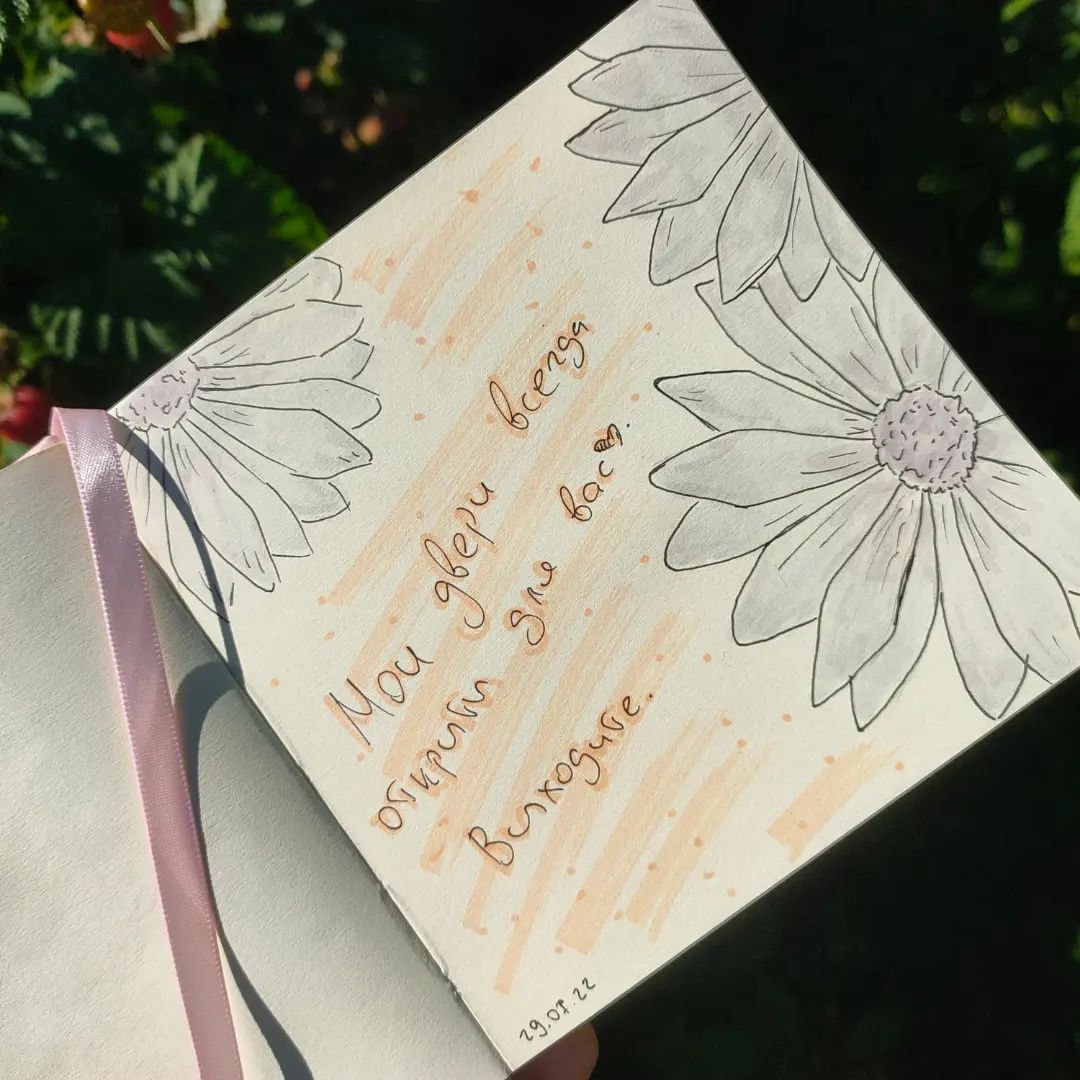 Мои двери всегда
открыты для вас.
Выходите.
29.07.22